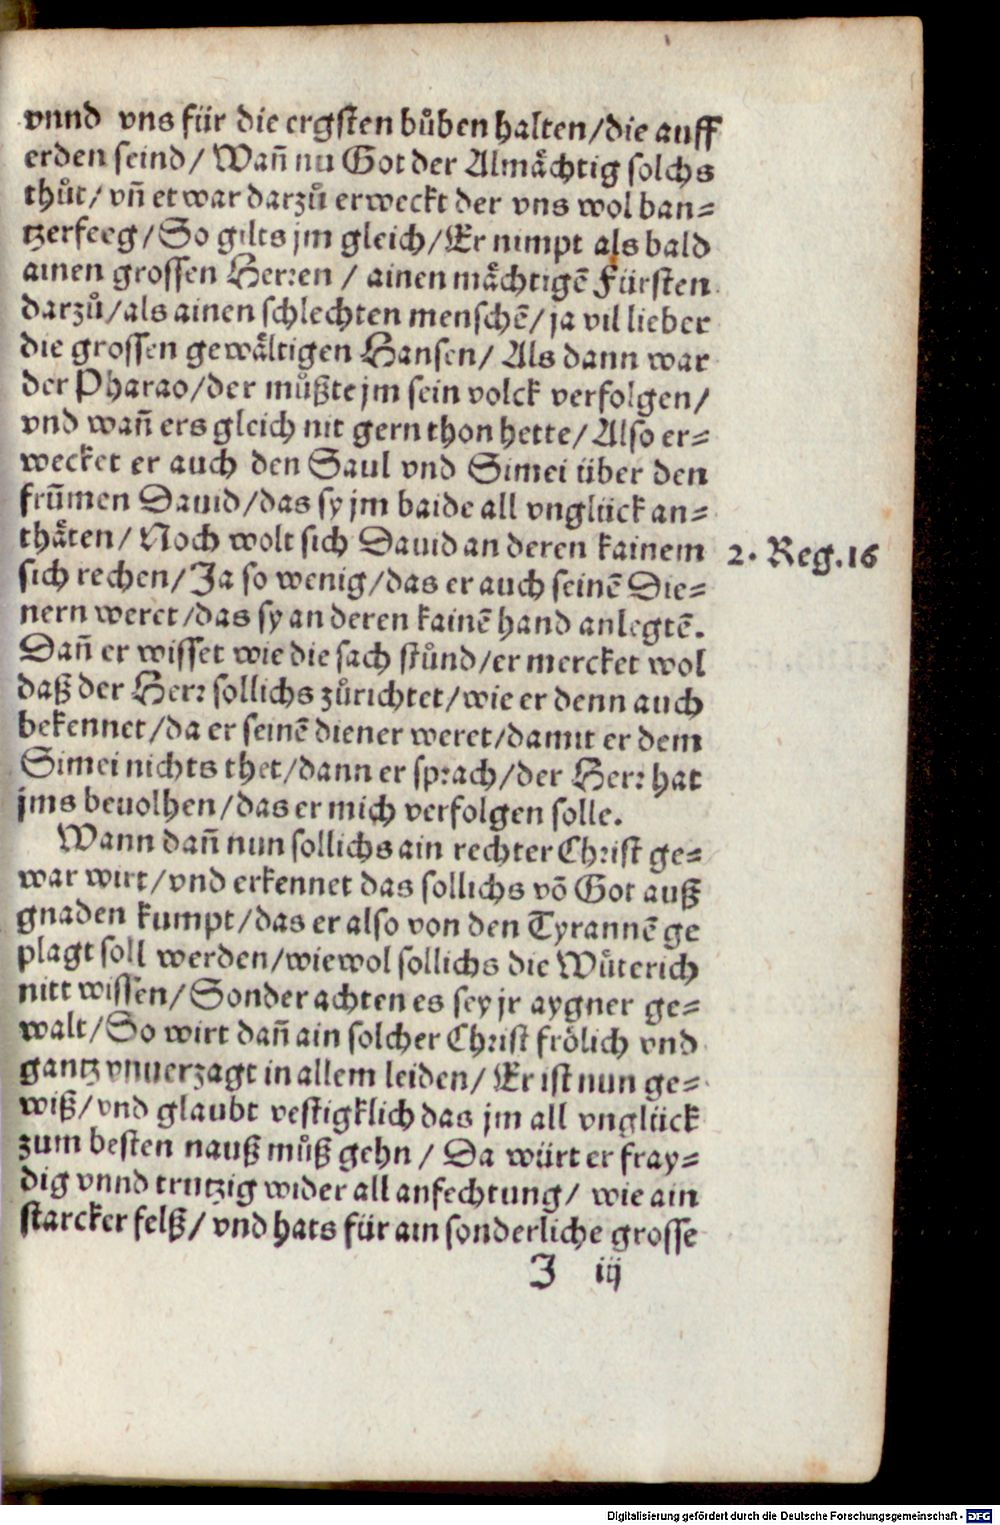 vnnd vns für die ergsten bůben halten/die auff
erden seind/ Wañ nu Got der Almåchtig solchs
thůt/ vñ etwar darzů erweckt der vns wol ban⸗
tzerfeeg/So gilts jm gleich/Er nimpt als bald
ainen grossen Herren / ainen måchtigẽ Fürsten
darzů/als ainen schlechten menschẽ/ja vil lieber
die grossen gewåltigen Hansen/ Als dann war
der Pharao/der můßte jm sein volck verfolgen/
vnd wañ ers gleich nit gern thon hette/Also er⸗
wecket er auch den Saul vnd Simei über den
frũmen Dauid/das sy jm baide all vnglück an⸗
thåten/ Noch wolt sich Dauid an deren kainem
2. Reg.16
sich rechen/Ja so wenig/das er auch seinẽ Die⸗
nern weret/das sy an deren kainẽ hand anlegtẽ.
Dañ er wisset wie die sach stůnd/er mercket wol
daß der Herr sollichs zůrichtet/wie er denn auch
bekennet/da er seinẽ diener weret/damit er dem
Simei nichts thet/dann er sprach/der Herr hat
jms beuolhen/das er mich verfolgen solle.
Wann dañ nun sollichs ain rechter Christ ge⸗
war wirt/vnd erkennet das sollichs võ Got auß
gnaden kumpt/das er also von den Tyrannẽ ge
plagt soll werden/wiewol sollichs die Wůterich
nitt wissen/Sonder achten es sey jr aygner ge⸗
walt/So wirt dañ ain solcher Christ frölich vnd
gantz vnuerzagt in allem leiden/ Er ist nun ge⸗
wiß/vnd glaubt vestigklich das jm all vnglück
zum besten nauß můß gehn / Da würt er fray⸗
dig vnnd trutzig wider all anfechtung/ wie ain
starcker felß/ vnd hats für ain sonderliche grosse
J iij
Digitalisierung gefördert durch die Deutsche Forschungsgemeinschaft - DFG